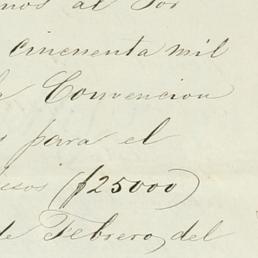 al Sor
cincuenta mil
Convencion
para el
($25000)
de Febrero, del